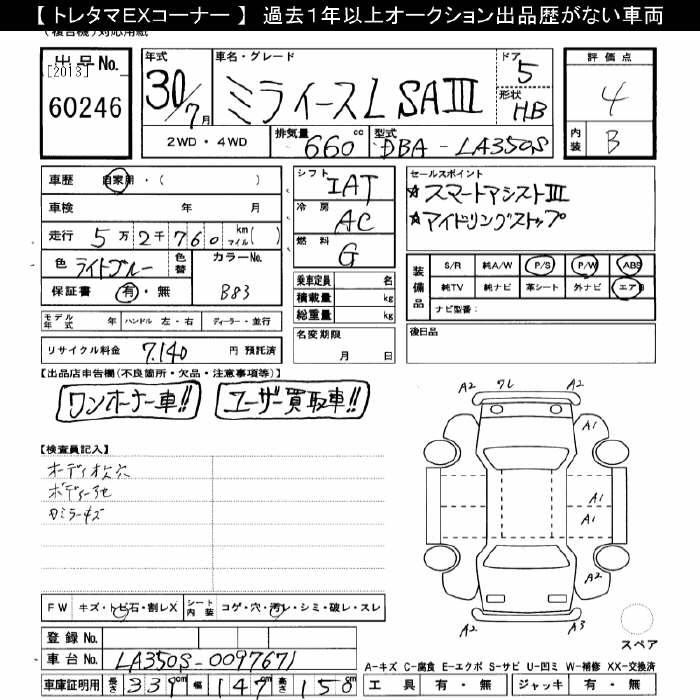 【 トレタマEXコーナー 】 過去1年以上オークション出品歴がない車両
出品No. [2013] 60246
年式 30/7月
車名・グレード ミライースL SAⅢ
ドア 5
形状 HB
評価点 4
内装 B
2WD・4WD 排気量 660 cc 型式 DBA-LA350S
車歴 自家用・( )
車検 年 月
走行 5万2千760 km マイル( )
色 ライトブルー 色替 カラーNo. B83
保証書 有・無
シフト IAT
冷房 AC
燃料 G
乗車定員 名
積載量 kg
総重量 kg
セールスポイント
☆スマートアシストⅢ
☆アイドリングストップ
装備品 S/R 純A/W P/S P/W ABS
純TV 純ナビ 革シート 外ナビ エアB
ナビ型番:
モデル年式 年 ハンドル 左・右 ディーラー・並行
名変期限 月 日
後日品
リサイクル料金 7,140 円 預託済
【出品店申告欄(不良箇所・欠品・注意事項等)】
ワンオーナー車!! ユーザー買取車!!
【検査員記入】
オーディオ欠穴
カミラーキズ
A2 ワレ A2
A1
A1
A1
A2
A2 A3
スペア
FW キズ・トビ石・割レX シート内装 コゲ・穴・汚レ・シミ・破レ・スレ
登録No.
車台No. LA350S-0097671
車庫証明用 長さ 339cm 幅 147cm 高さ 150cm
A-キズ C-腐食 E-エクボ S-サビ U-凹ミ W-補修 XX-交換済
工具 有・無 ジャッキ 有・無